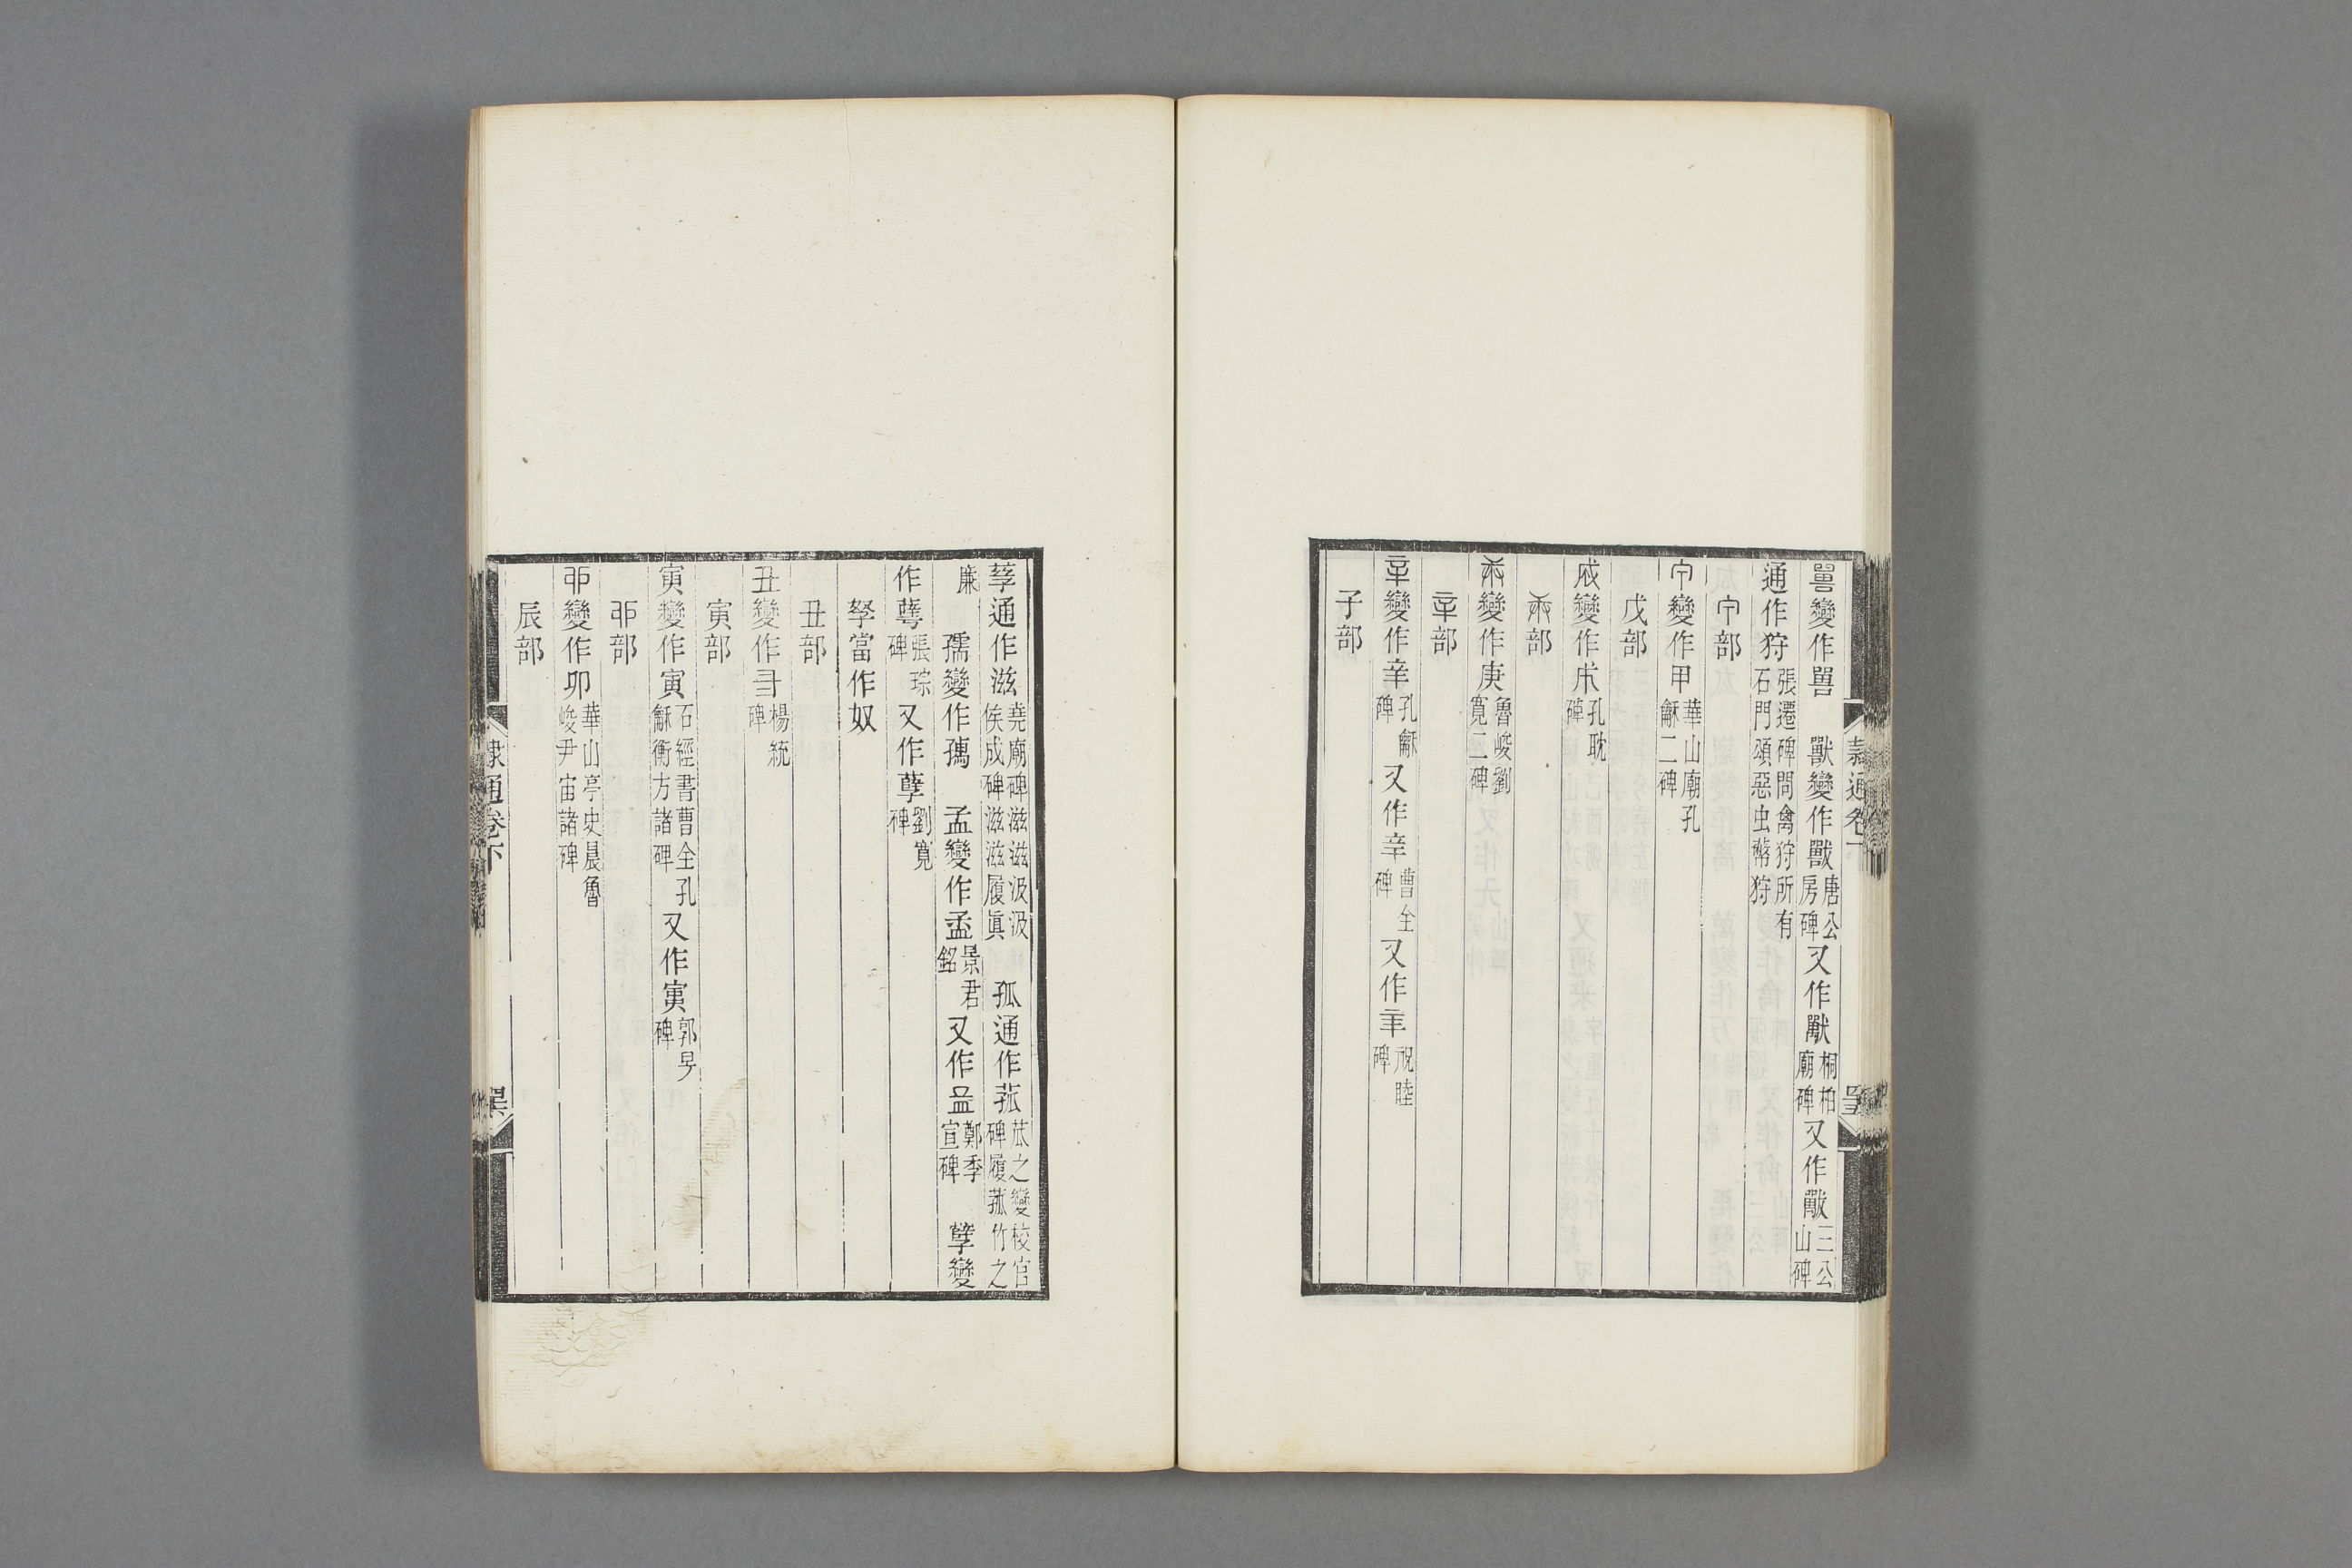 嘼變作嘼　獸變作獸唐公房碑又作獸桐柏廟碑又作獸三公山碑
通作狩張遷碑問禽狩所有石門頌惡虫㡀狩
部
變作甲華山廟孔龢二碑
戊部
成變作戌孔耽碑
部
變作庚魯峻劉寬二碑
辛部
辛變作辛孔龢碑又作辛曹全碑又作祝睦碑
子部
隸通卷
孳通作滋堯廟碑滋滋汲汲侯成碑滋滋履真　孤通作菰苽之變校官碑履菰竹之
廉　孺變作孺　孟變作孟景君銘又作孟鄭季宣碑　孽變
作孽張琮碑又作孽劉寬碑
孥當作奴
丑部
丑變作楊統碑
寅部
寅變作寅石經書曹全孔龢衡方諸碑又作寅郭旻碑
戼部
戼變作卯華山亭史晨魯峻尹宙諸碑
辰部
隸通卷下